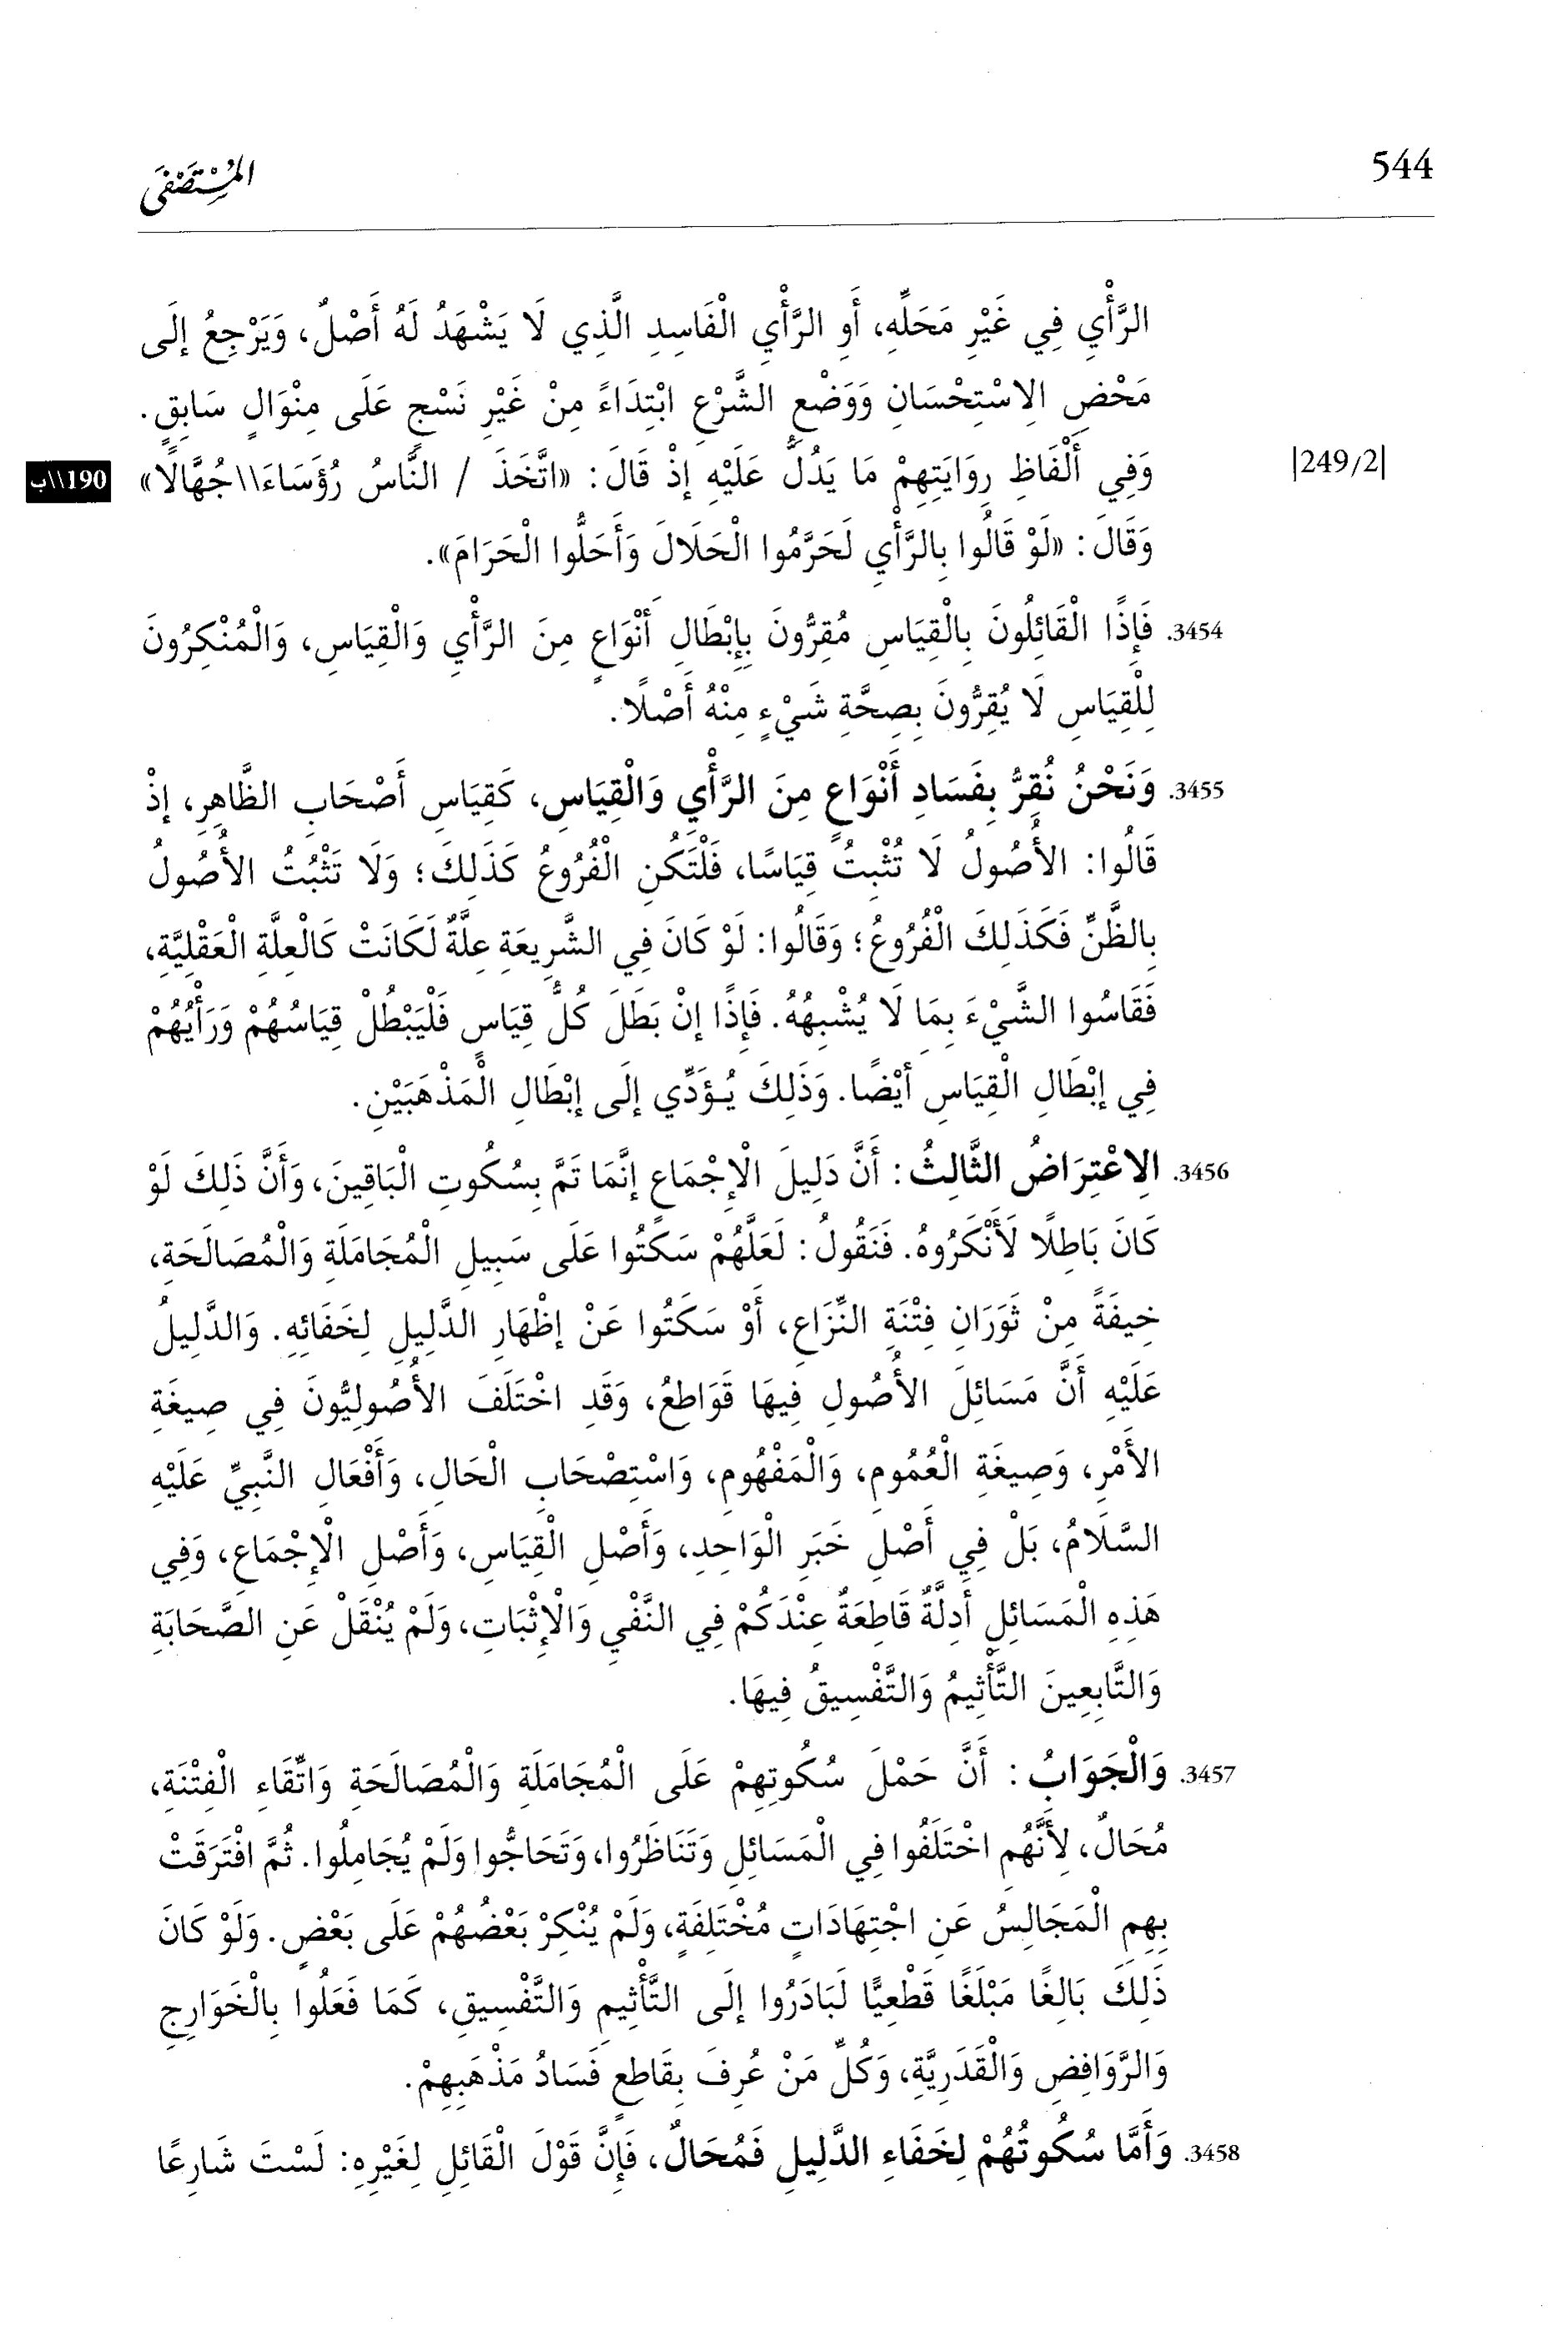 544
المُسْتَصْفَى
الرَّأْيِ فِي غَيْرِ مَحَلِّهِ، أَوِ الرَّأْيِ الْفَاسِدِ الَّذِي لَا يَشْهَدُ لَهُ أَصْلٌ، وَيَرْجِعُ إِلَى
مَحْضِ الِاسْتِحْسَانِ وَوَضْعِ الشَّرْعِ ابْتِدَاءً مِنْ غَيْرِ نَسْجٍ عَلَى مِنْوَالٍ سَابِقٍ.
|249/2| وَفِي أَلْفَاظِ رِوَايَتِهِمْ مَا يَدُلُّ عَلَيْهِ إِذْ قَالَ: «اتَّخَذَ / النَّاسُ رُؤَسَاءَ\\جُهَّالًا» 190\\ب
وَقَالَ: «لَوْ قَالُوا بِالرَّأْيِ لَحَرَّمُوا الْحَلَالَ وَأَحَلُّوا الْحَرَامَ».
3454. فَإِذًا الْقَائِلُونَ بِالْقِيَاسِ مُقِرُّونَ بِإِبْطَالِ أَنْوَاعٍ مِنَ الرَّأْيِ وَالْقِيَاسِ، وَالْمُنْكِرُونَ
لِلْقِيَاسِ لَا يُقِرُّونَ بِصِحَّةِ شَيْءٍ مِنْهُ أَصْلًا.
3455. وَنَحْنُ نُقِرُّ بِفَسَادِ أَنْوَاعٍ مِنَ الرَّأْيِ وَالْقِيَاسِ، كَقِيَاسِ أَصْحَابِ الظَّاهِرِ، إِذْ
قَالُوا: الأُصُولُ لَا تُثْبِتُ قِيَاسًا، فَلْتَكُنِ الْفُرُوعُ كَذَلِكَ؛ وَلَا تَثْبُتُ الأُصُولُ
بِالظَّنِّ فَكَذَلِكَ الْفُرُوعُ؛ وَقَالُوا: لَوْ كَانَ فِي الشَّرِيعَةِ عِلَّةٌ لَكَانَتْ كَالْعِلَّةِ الْعَقْلِيَّةِ،
فَقَاسُوا الشَّيْءَ بِمَا لَا يُشْبِهُهُ. فَإِذًا إِنْ بَطَلَ كُلُّ قِيَاسٍ فَلْيَبْطُلْ قِيَاسُهُمْ وَرَأْيُهُمْ
فِي إِبْطَالِ الْقِيَاسِ أَيْضًا. وَذَلِكَ يُؤَدِّي إِلَى إِبْطَالِ الْمَذْهَبَيْنِ.
3456. الِاعْتِرَاضُ الثَّالِثُ: أَنَّ دَلِيلَ الْإِجْمَاعِ إِنَّمَا تَمَّ بِسُكُوتِ الْبَاقِينَ، وَأَنَّ ذَلِكَ لَوْ
كَانَ بَاطِلًا لَأَنْكَرُوهُ. فَنَقُولُ: لَعَلَّهُمْ سَكَتُوا عَلَى سَبِيلِ الْمُجَامَلَةِ وَالْمُصَالَحَةِ،
خِيفَةً مِنْ ثَوَرَانِ فِتْنَةِ النِّزَاعِ، أَوْ سَكَتُوا عَنْ إِظْهَارِ الدَّلِيلِ لِخَفَائِهِ. وَالدَّلِيلُ
عَلَيْهِ أَنَّ مَسَائِلَ الأُصُولِ فِيهَا قَوَاطِعُ، وَقَدِ اخْتَلَفَ الأُصُولِيُّونَ فِي صِيغَةِ
الأَمْرِ، وَصِيغَةِ الْعُمُومِ، وَالْمَفْهُومِ، وَاسْتِصْحَابِ الْحَالِ، وَأَفْعَالِ النَّبِيِّ عَلَيْهِ
السَّلَامُ، بَلْ فِي أَصْلِ خَبَرِ الْوَاحِدِ، وَأَصْلِ الْقِيَاسِ، وَأَصْلِ الْإِجْمَاعِ، وَفِي
هَذِهِ الْمَسَائِلِ أَدِلَّةٌ قَاطِعَةٌ عِنْدَكُمْ فِي النَّفْيِ وَالْإِثْبَاتِ، وَلَمْ يُنْقَلْ عَنِ الصَّحَابَةِ
وَالتَّابِعِينَ التَّأْثِيمُ وَالتَّفْسِيقُ فِيهَا.
3457. وَالْجَوَابُ: أَنَّ حَمْلَ سُكُوتِهِمْ عَلَى الْمُجَامَلَةِ وَالْمُصَالَحَةِ وَاتِّقَاءِ الْفِتْنَةِ،
مُحَالٌ، لِأَنَّهُم اخْتَلَفُوا فِي الْمَسَائِلِ وَتَنَاظَرُوا، وَتَحَاجُّوا وَلَمْ يُجَامِلُوا. ثُمَّ افْتَرَقَتْ
بِهِم الْمَجَالِسُ عَنِ اجْتِهَادَاتٍ مُخْتَلِفَةٍ، وَلَمْ يُنْكِرْ بَعْضُهُمْ عَلَى بَعْضٍ. وَلَوْ كَانَ
ذَلِكَ بَالِغًا مَبْلَغًا قَطْعِيًّا لَبَادَرُوا إِلَى التَّأْثِيمِ وَالتَّفْسِيقِ، كَمَا فَعَلُوا بِالْخَوَارِجِ
وَالرَّوَافِضِ وَالْقَدَرِيَّةِ، وَكُلِّ مَنْ عُرِفَ بِقَاطِعٍ فَسَادُ مَذْهَبِهِمْ.
3458. وَأَمَّا سُكُوتُهُمْ لِخَفَاءِ الدَّلِيلِ فَمُحَالٌ، فَإِنَّ قَوْلَ الْقَائِلِ لِغَيْرِهِ: لَسْتَ شَارِعًا